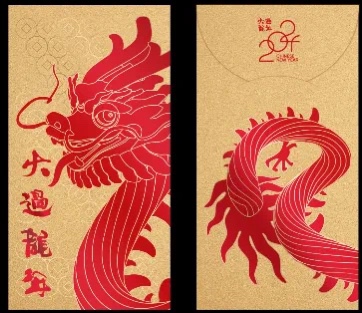 火過龍年
火過
龍年
2024
CHINESE
NEW YEAR